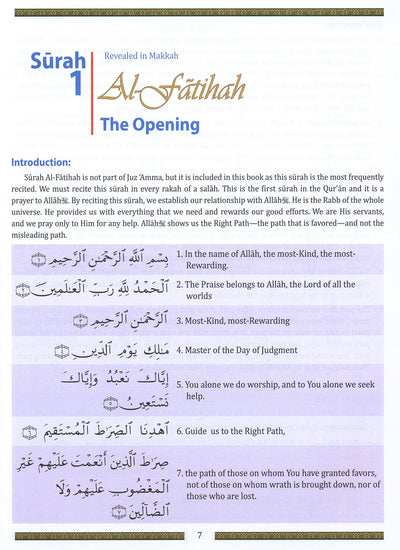 Sūrah
1
Revealed in Makkah
Al-Fātihah
The Opening
Introduction:
Sūrah Al-Fātihah is not part of Juz ‘Amma, but it is included in this book as this sūrah is the most frequently
recited. We must recite this sūrah in every rakah of a salāh. This is the first sūrah in the Qur’ān and it is a
prayer to Allāhﷻ. By reciting this sūrah, we establish our relationship with Allāhﷻ. He is the Rabb of the whole
universe. He provides us with everything that we need and rewards our good efforts. We are His servants,
and we pray only to Him for any help. Allāhﷻ shows us the Right Path—the path that is favored—and not the
misleading path.
بِسْمِ ٱللَّهِ ٱلرَّحْمَٰنِ ٱلرَّحِيمِ ١
1. In the name of Allāh, the most-Kind, the most-
Rewarding.
ٱلْحَمْدُ لِلَّهِ رَبِّ ٱلْعَٰلَمِينَ ٢
2. The Praise belongs to Allāh, the Lord of all the
worlds
ٱلرَّحْمَٰنِ ٱلرَّحِيمِ ٣
3. Most-Kind, most-Rewarding
مَٰلِكِ يَوْمِ ٱلدِّينِ ٤
4. Master of the Day of Judgment
إِيَّاكَ نَعْبُدُ وَإِيَّاكَ
نَسْتَعِينُ ٥
5. You alone we do worship, and to You alone we seek
help.
ٱهْدِنَا ٱلصِّرَٰطَ ٱلْمُسْتَقِيمَ ٦
6. Guide us to the Right Path,
صِرَٰطَ ٱلَّذِينَ أَنْعَمْتَ عَلَيْهِمْ غَيْرِ
ٱلْمَغْضُوبِ عَلَيْهِمْ وَلَا
ٱلضَّآلِّينَ ٧
7. the path of those on whom You have granted favors,
not of those on whom wrath is brought down, nor of
those who are lost.
7